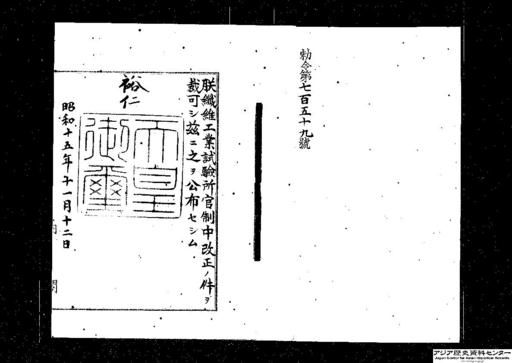 勅令第七百五十九號
朕纖維工業試驗所官制中改正ノ件ヲ
裁可シ茲ニ之ヲ公布セシム
裕仁
天皇御璽
昭和十五年十一月十二日
アジア歴史資料センター
Japan Center for Asian Historical Records